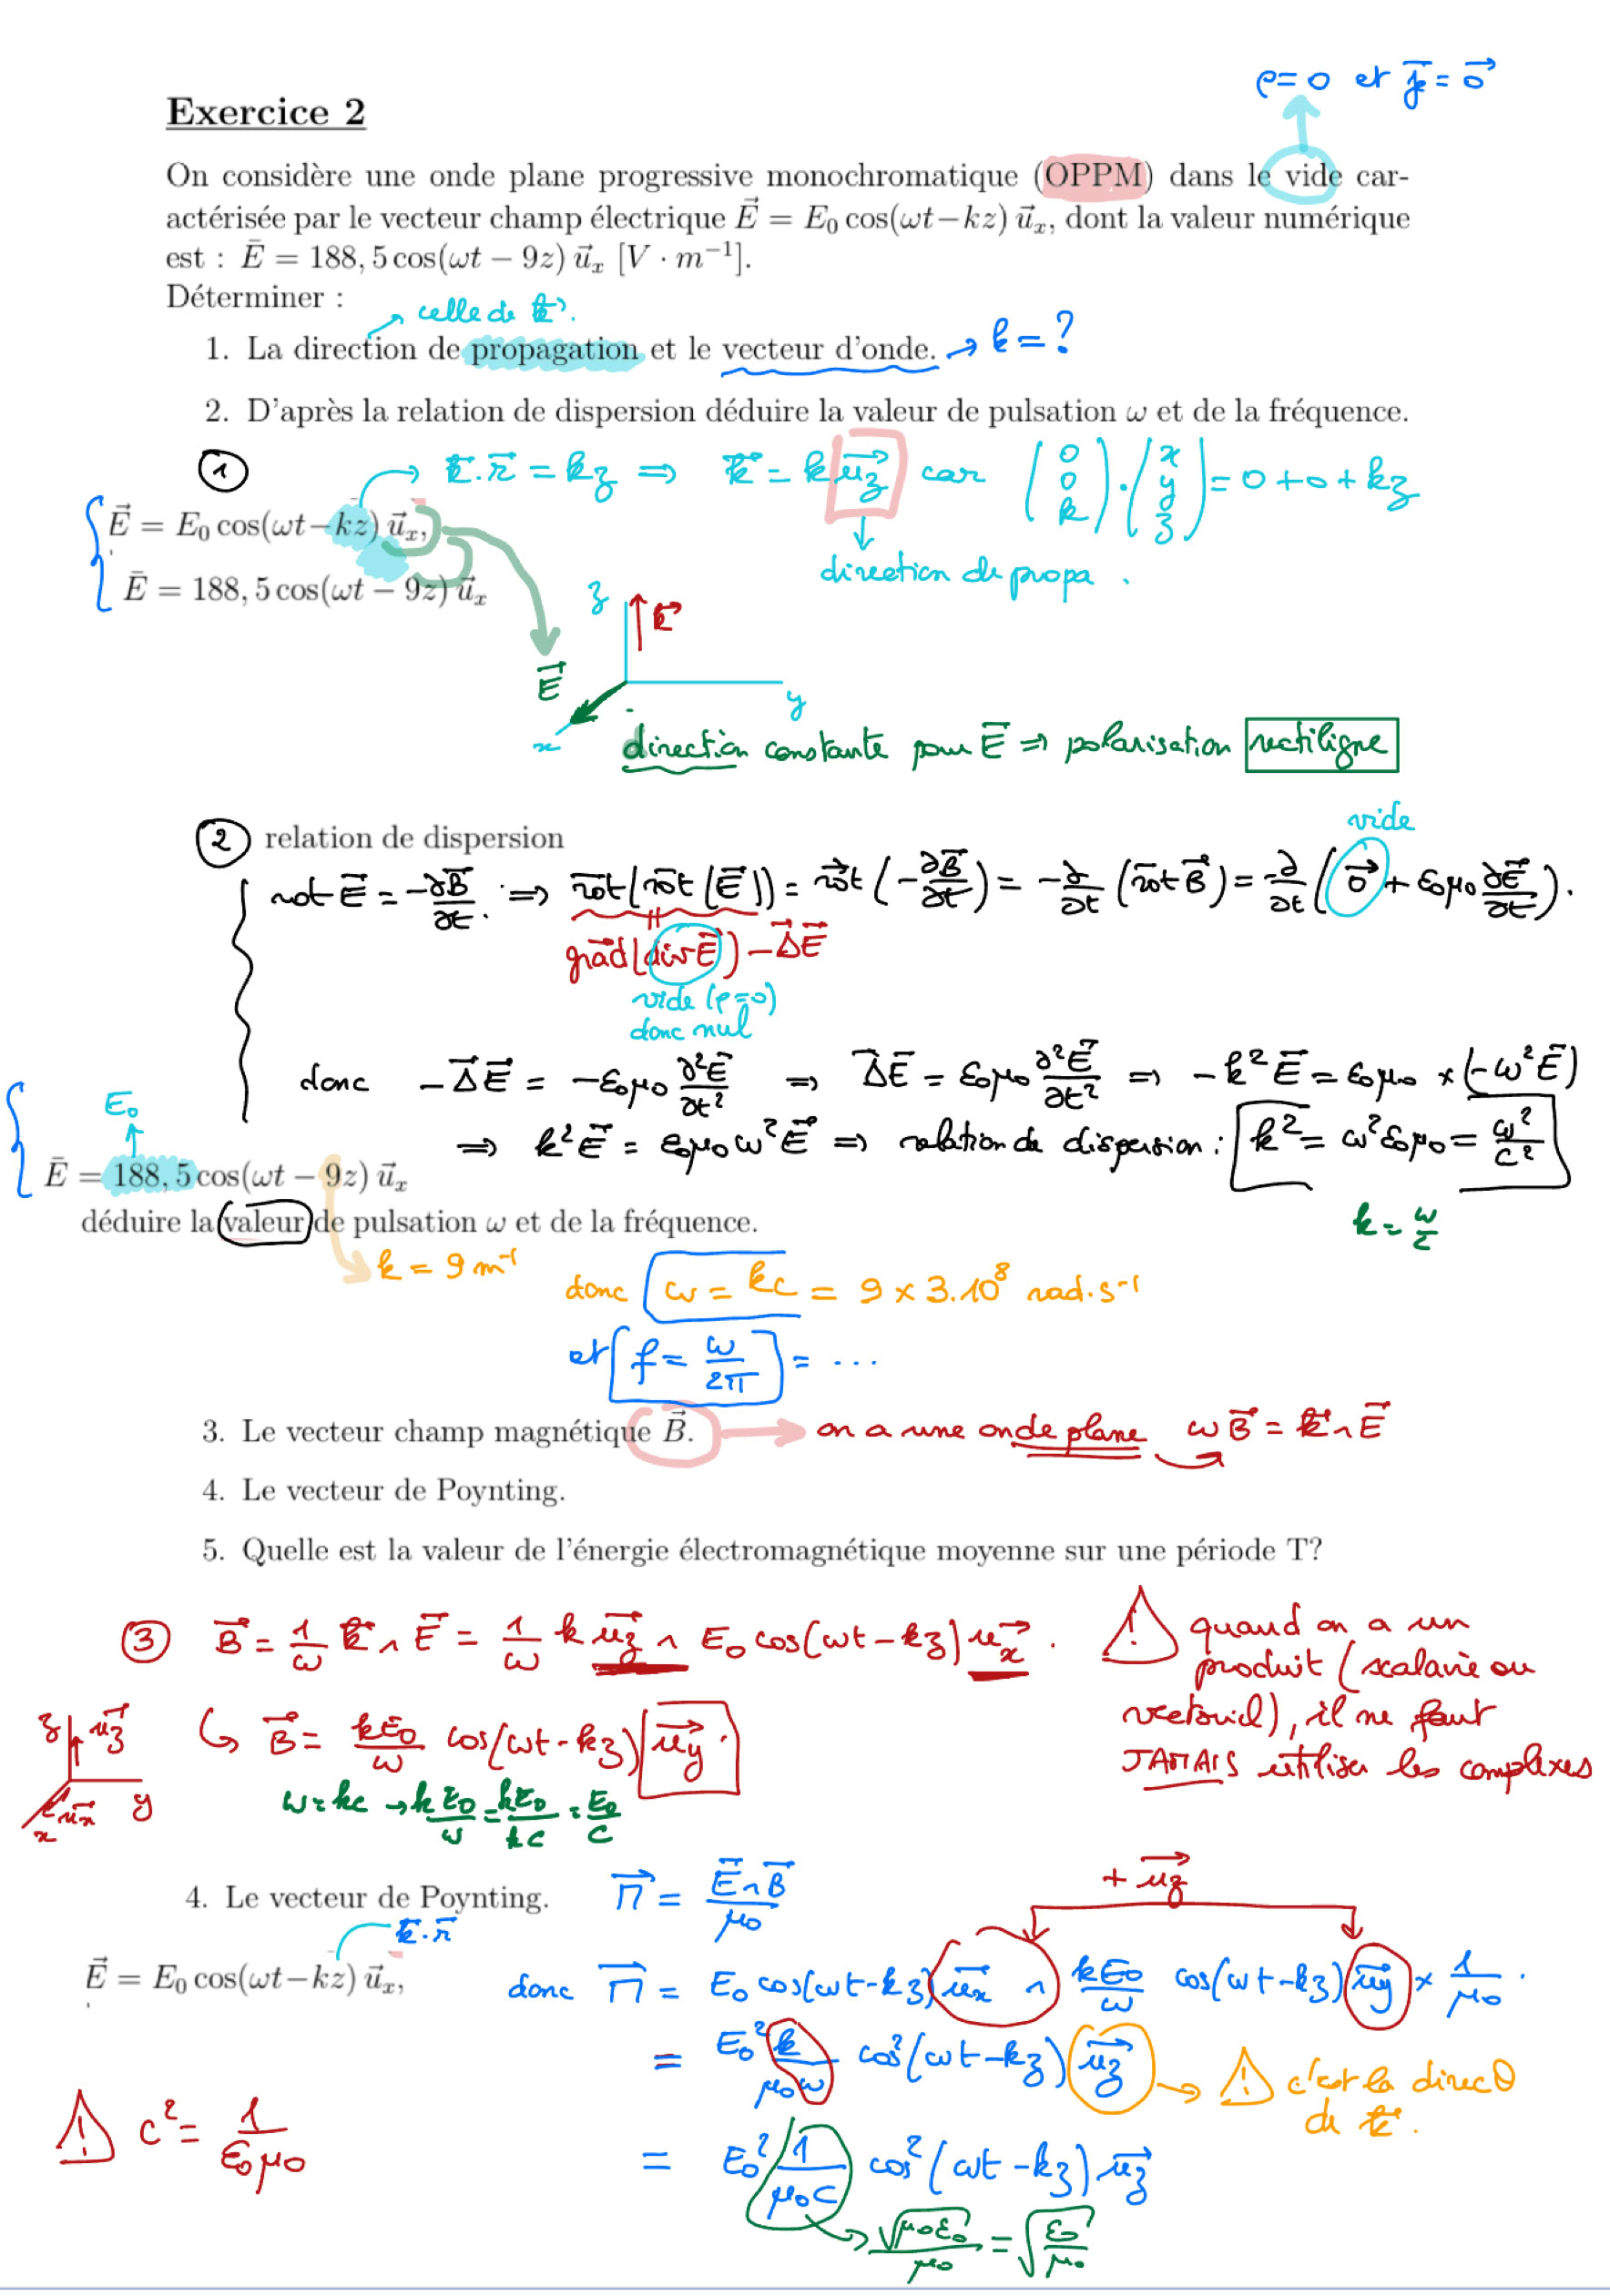 ρ=0 et j⃗=0⃗
Exercice 2
On considère une onde plane progressive monochromatique (OPPM) dans le vide car-
actérisée par le vecteur champ électrique E⃗ = E₀ cos(ωt−kz) u⃗ₓ, dont la valeur numérique
est : Ē = 188, 5 cos(ωt − 9z) u⃗ₓ [V · m⁻¹].
Déterminer :
celle de k⃗.
1. La direction de propagation et le vecteur d'onde. → k = ?
2. D'après la relation de dispersion déduire la valeur de pulsation ω et de la fréquence.
① k⃗.r⃗ = kz ⇒ k⃗ = k u⃗z car (0 0 k).(x y z) = 0+0+kz
E⃗ = E₀ cos(ωt−kz) u⃗ₓ,
direction de propa.
Ē = 188, 5 cos(ωt − 9z) u⃗ₓ
z k⃗
E⃗
y
x
direction constante pour E⃗ ⇒ polarisation rectiligne
vide
② relation de dispersion
rot E⃗ = -∂B⃗/∂t. ⇒ rot(rot(E⃗)) = rot(-∂B⃗/∂t) = -∂/∂t (rot B⃗) = -∂/∂t (0⃗ + ε₀μ₀ ∂E⃗/∂t).
grad(div E⃗) - ΔE⃗
vide (ρ=0)
donc nul
donc -ΔE⃗ = -ε₀μ₀ ∂²E⃗/∂t² ⇒ ΔE⃗ = ε₀μ₀ ∂²E⃗/∂t² ⇒ -k²E⃗ = ε₀μ₀ × (-ω²E⃗)
E₀
⇒ k²E⃗ = ε₀μ₀ω²E⃗ ⇒ relation de dispersion : k² = ω²ε₀μ₀ = ω²/c²
Ē = 188, 5 cos(ωt − 9z) u⃗ₓ
déduire la valeur de pulsation ω et de la fréquence.
k = ω/c
k = 9 m⁻¹
donc ω = kc = 9 × 3.10⁸ rad.s⁻¹
et f = ω/2π = ...
3. Le vecteur champ magnétique B⃗. → on a une onde plane ωB⃗ = k⃗∧E⃗
4. Le vecteur de Poynting.
5. Quelle est la valeur de l'énergie électromagnétique moyenne sur une période T?
③ B⃗ = 1/ω k⃗ ∧ E⃗ = 1/ω k u⃗z ∧ E₀ cos(ωt-kz) u⃗x.
⚠ quand on a un
produit (scalaire ou
vectoriel), il ne faut
JAMAIS utiliser les complexes
z u⃗z
u⃗x y
x
↳ B⃗ = kE₀/ω cos(ωt-kz) u⃗y.
ω=kc → kE₀/ω = kE₀/kc = E₀/c
4. Le vecteur de Poynting. Π⃗ = E⃗∧B⃗/μ₀
+ u⃗z
k⃗.r⃗
E⃗ = E₀ cos(ωt−kz) u⃗ₓ,
donc Π⃗ = E₀ cos(ωt-kz) u⃗x ∧ kE₀/ω cos(ωt-kz) u⃗y × 1/μ₀.
= E₀² k/μ₀ω cos²(ωt-kz) u⃗z → ⚠ c'est la direc⁰
de k⃗.
⚠ c² = 1/ε₀μ₀
= E₀² 1/μ₀c cos²(ωt-kz) u⃗z
√μ₀ε₀/μ₀ = √ε₀/μ₀